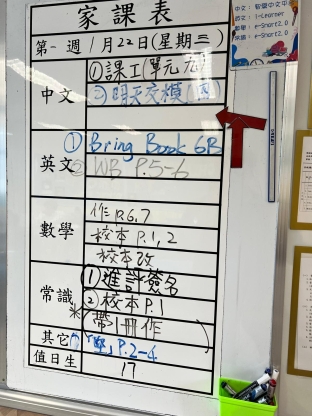 家課表
第一週 1月22日(星期三)
中文
①課工(單元六)
②明天交模(四)
英文
① Bring Book 6B
② WB P.5-6
數學
作 P.6,7
校本 P.1,2
校本改
常識
①進評簽名
②校本P.1
*帶1冊作
其它
P.2-4
值日生
17
1-Learner
e-Smart2.0
e-Smart2.0